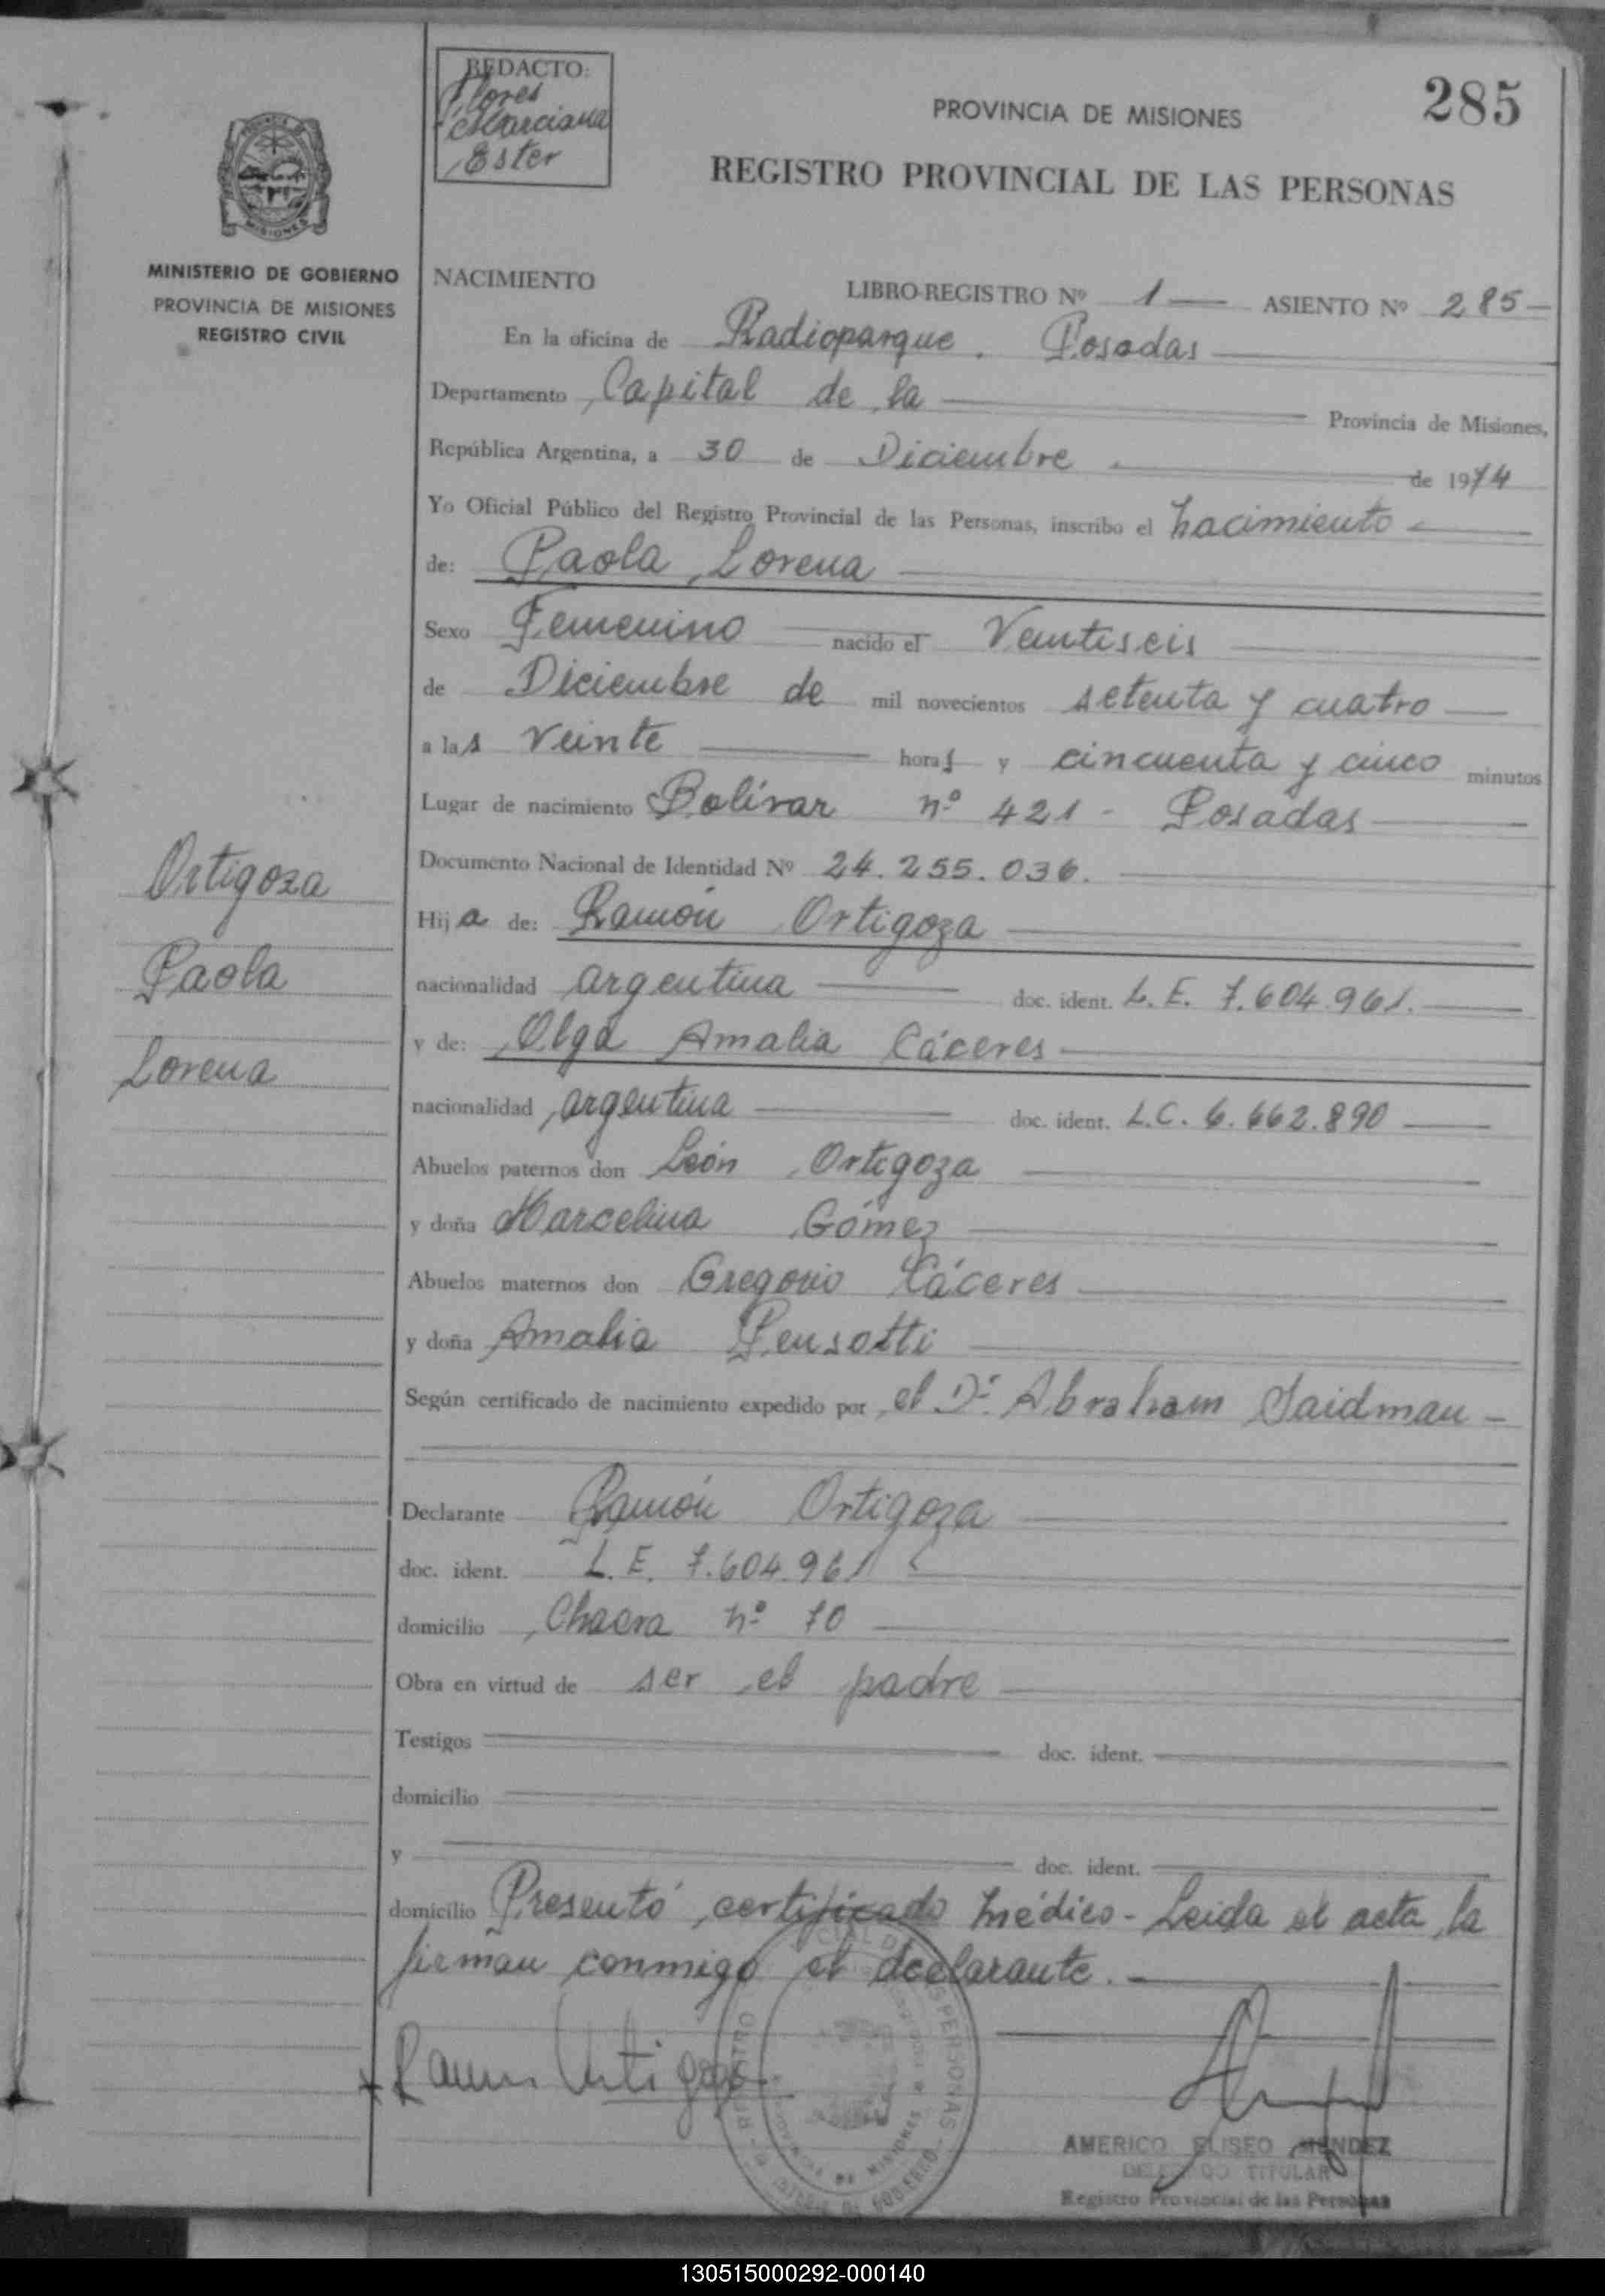 REDACTO:
Flores
Marciana
Ester
PROVINCIA DE MISIONES
285
REGISTRO PROVINCIAL DE LAS PERSONAS
MISIONES
MINISTERIO DE GOBIERNO
PROVINCIA DE MISIONES
REGISTRO CIVIL
NACIMIENTO
LIBRO-REGISTRO Nº 1 — ASIENTO Nº 285 —
En la oficina de Radioparque. Posadas
Departamento Capital de la Provincia de Misiones,
República Argentina, a 30 de Diciembre de 1974
Yo Oficial Público del Registro Provincial de las Personas, inscribo el nacimiento
de: Paola Lorena
Sexo Femenino nacido el Veintiseis
de Diciembre de mil novecientos setenta y cuatro
a las veinte horas y cincuenta y cinco minutos
Lugar de nacimiento Bolívar nº 421 - Posadas
Documento Nacional de Identidad Nº 24.255.036.
Hija de: Ramón Ortigoza
nacionalidad argentina doc. ident. L.E. 7.604.961.
y de: Olga Amalia Cáceres
nacionalidad argentina doc. ident. L.C. 6.662.890
Abuelos paternos don León Ortigoza
y doña Marcelina Gómez
Abuelos maternos don Gregorio Cáceres
y doña Amalia Pensotti
Según certificado de nacimiento expedido por el Dr. Abraham Saidman -
Declarante Ramón Ortigoza
doc. ident. L.E. 7.604.961
domicilio Chacra nº 70
Obra en virtud de ser el padre
Testigos doc. ident.
domicilio
y doc. ident.
domicilio Presentó certificado médico - Leida el acta la
firman conmigo el declarante. -
Ortigoza
Paola
Lorena
Ramon Ortigoza
AMERICO ELISEO MENDEZ
DELEGADO TITULAR
Registro Provincial de las Personas
130515000292-000140